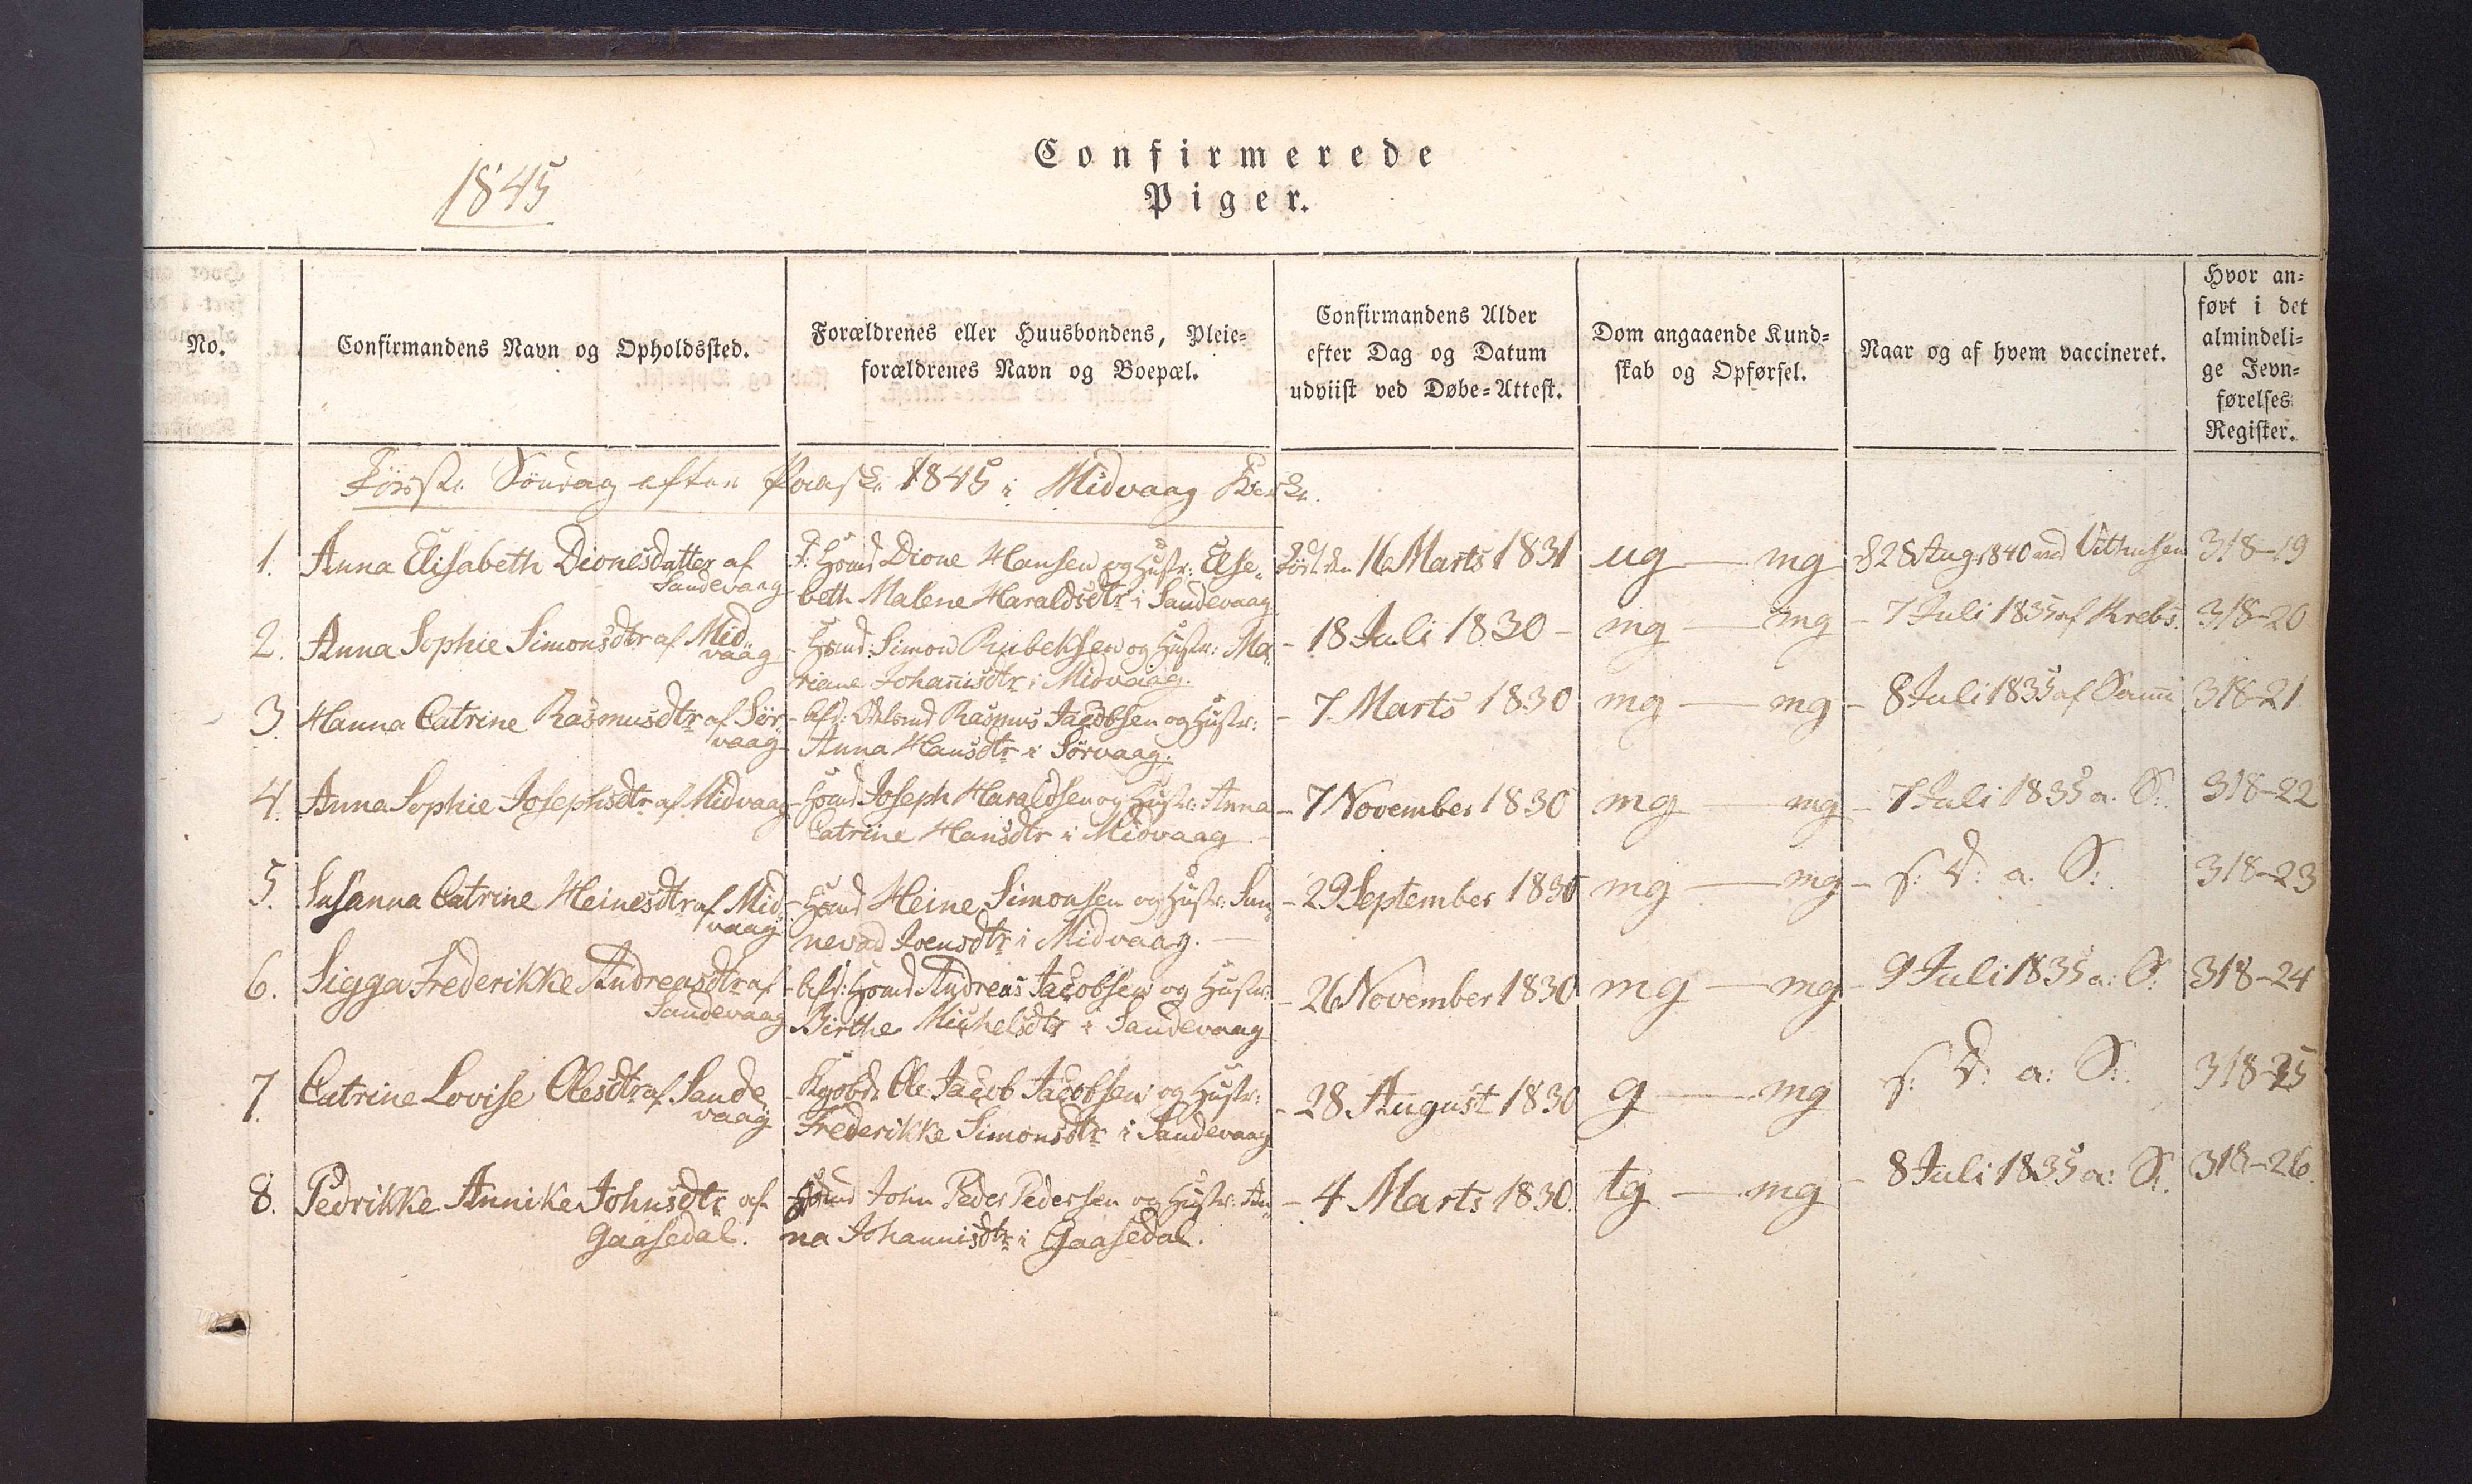 1845
Confirmerede
Piger.
No.
Confirmandens Navn og Opholdssted.
Forældrenes eller Huusbondens, Pleie=
forældrenes Navn og Boepæl.
Confirmandens Alder
efter Dag og Datum
udviist ved Døbe=Attest.
Dom angaaende Kund=
skab og Opførsel.
Naar og af hvem vaccineret.
Hvor an=
ført i det
almindeli=
ge Jevn=
førelses
Register.
Første Søndag efter Paaske 1845 i Midvaag Kirke.
1. Anna Elisabeth Dionesdatter af
Sandevaag
F: Hosmd Dione Hansen og Hustr: Else=
beth Malene Haraldsdtr i Sandevaag
Født den 16 Marts 1831
ug — mg
d 28 Aug 1840 ved
318-19
2. Anna Sophie Simonsdtr af Mid=
vaag
- Hosmd: Simon Rubeksen og Hustr: Ma=
riane Johannisdtr i Midvaag.
- 18 Juli 1830 -
mg — mg
- 7 Juli 1835 af Krebs.
318-20
3. Hanna Catrine Rasmusdtr af Sør=
vaag
- Rasmus Jacobsen og Hustr:
Anna Hansdtr i Sørvaag.
- 7 Marts 1830
mg — mg
- 8 Juli 1835 af Samme
318-21
4. Anna Sophie Josephsdtr af Midvaag
- Hosmd Joseph Haraldsen og Hustr: Anna
Catrine Hansdtr i Midvaag
- 7 November 1830
mg — mg
- 7 Juli 1835 a. S:.
318-22
5. Susanna Catrine Heinesdtr af Mid=
vaag
- Hosmd Heine Simonsen og Hustr: Sun=
nevad Joensdtr i Midvaag. —
- 29 September 1830
mg — mg
- s: D: a. S:.
318-23
6. Sigga Frederikke Andreasdtr af
Sandevaag
- Afd: Hosmd Andreas Jacobsen og Hustr:
Birthe Michelsdtr i Sandevaag
- 26 November 1830
mg — mg
- 9 Juli 1835 a: S:
318-24
7. Catrine Lovise Olesdtr af Sande=
vaag
- Ole Jacob Jacobsen og Hustr:
Frederikke Simonsdtr i Sandevaag
- 28 August 1830
g — mg
s: D: a: S:.
318-25
8. Pedrikke Annike Johnsdtr af
Gaasedal.
Hosmd John Peder Pedersen og Hustr: An=
na Johannisdtr i Gaasedal.
- 4 Marts 1830.
tg — mg
- 8 Juli 1835 a: S:.
318-26.